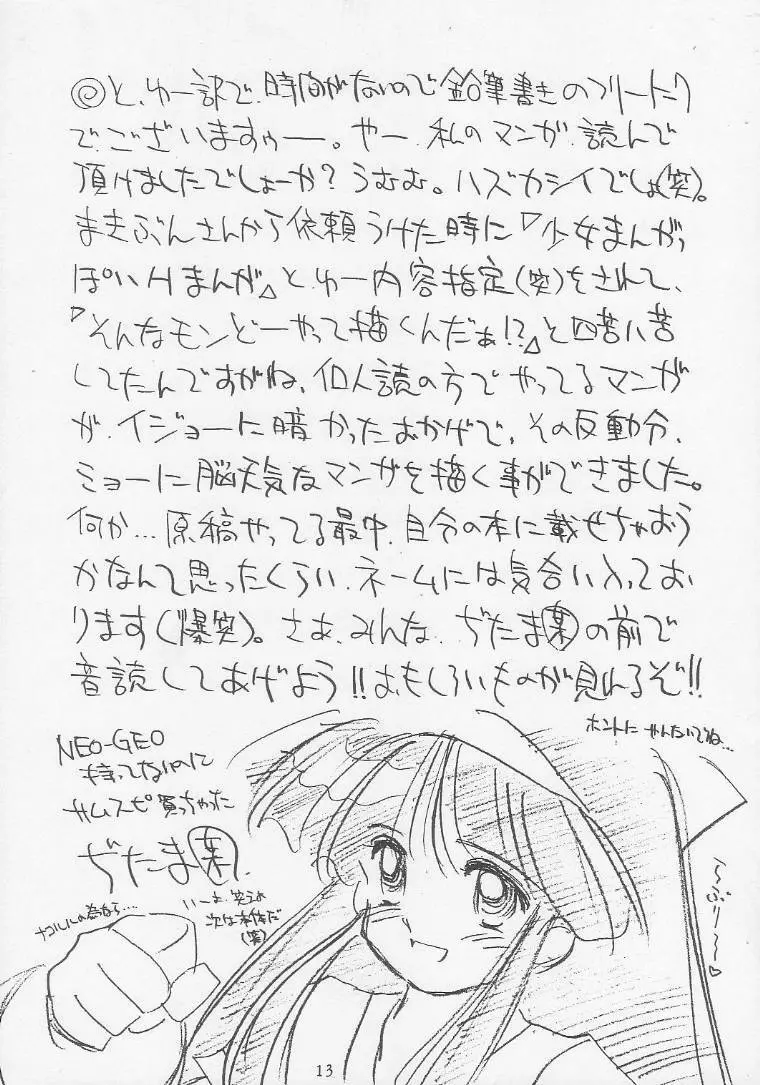 ◎と、ゆー訳で、時間がないので鉛筆書きのフリートーク
でございますぅー。やー、私のマンガ、読んで
頂けましたでしょーか?うむむ。ハズカシイでしょ(笑)。
まきぶんさんから依頼うけた時に『少女まんがっ
ぽいHまんが』と、ゆー内容指定(笑)をされて、
『そんなモンどーやって描くんだぁ!?』と四苦八苦
してたんですがね、個人誌の方でやってるマンガ
が、イジョーに暗かったおかげで、その反動分、
ミョーに脳天気なマンガを描く事ができました。
何か…原稿やってる最中、自分の本に載せちゃおう
かなんて思ったくらい、ネームには気合い入ってお
ります(爆笑)。さあ、みんな、ぢたま某の前で
音読してあげよう!!おもしろいものが見れるぞ!!
ホントに やんないでね…
NEO-GEO
持ってないのに
サムスピ買っちゃった
ぢたま某.
いーよ、笑うの
次は本体だ
(笑)
ナコルルの為なら…
〜ぶりー〜♡
13